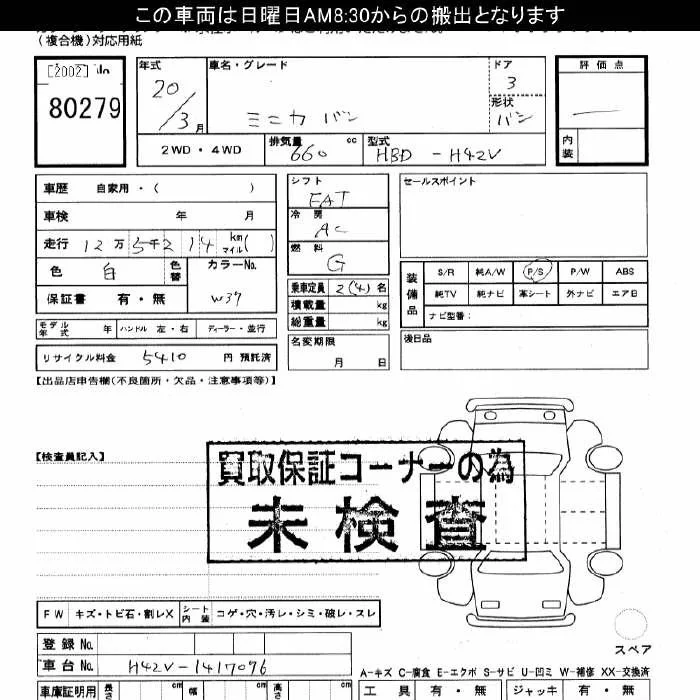 この車両は日曜日AM8:30からの搬出となります
(複合機)対応用紙
[2002] No
80279
年式 20/3月
車名・グレード ミニカバン
ドア 3
形状 バン
評価点 —
内装
2WD・4WD
排気量 660 cc
型式 HBD-H42V
車歴 自家用・( )
車検 年 月
走行 12万5千214 km マイル( )
色 白 色替
カラーNo. W37
保証書 有・無
モデル年式 年 ハンドル 左・右 ディーラー・並行
リサイクル料金 5410 円 預託済
シフト FAT
冷房 AC
燃料 G
乗車定員 2(4)名
積載量 kg
総重量 kg
名変期限
月 日
セールスポイント
装備品
S/R 純A/W P/S P/W ABS
純TV 純ナビ 革シート 外ナビ エアB
ナビ型番:
後日品
【出品店申告欄(不良箇所・欠品・注意事項等)】
【検査員記入】
買取保証コーナーの為
未検査
FW キズ・トビ石・割レX シート内装 コゲ・穴・汚レ・シミ・破レ・スレ
スペア
登録No.
車台No. H42V-1417096
A-キズ C-腐食 E-エクボ S-サビ U-凹ミ W-補修 XX-交換済
車庫証明用 長さ cm 幅 cm 高さ cm
工具 有・無 ジャッキ 有・無